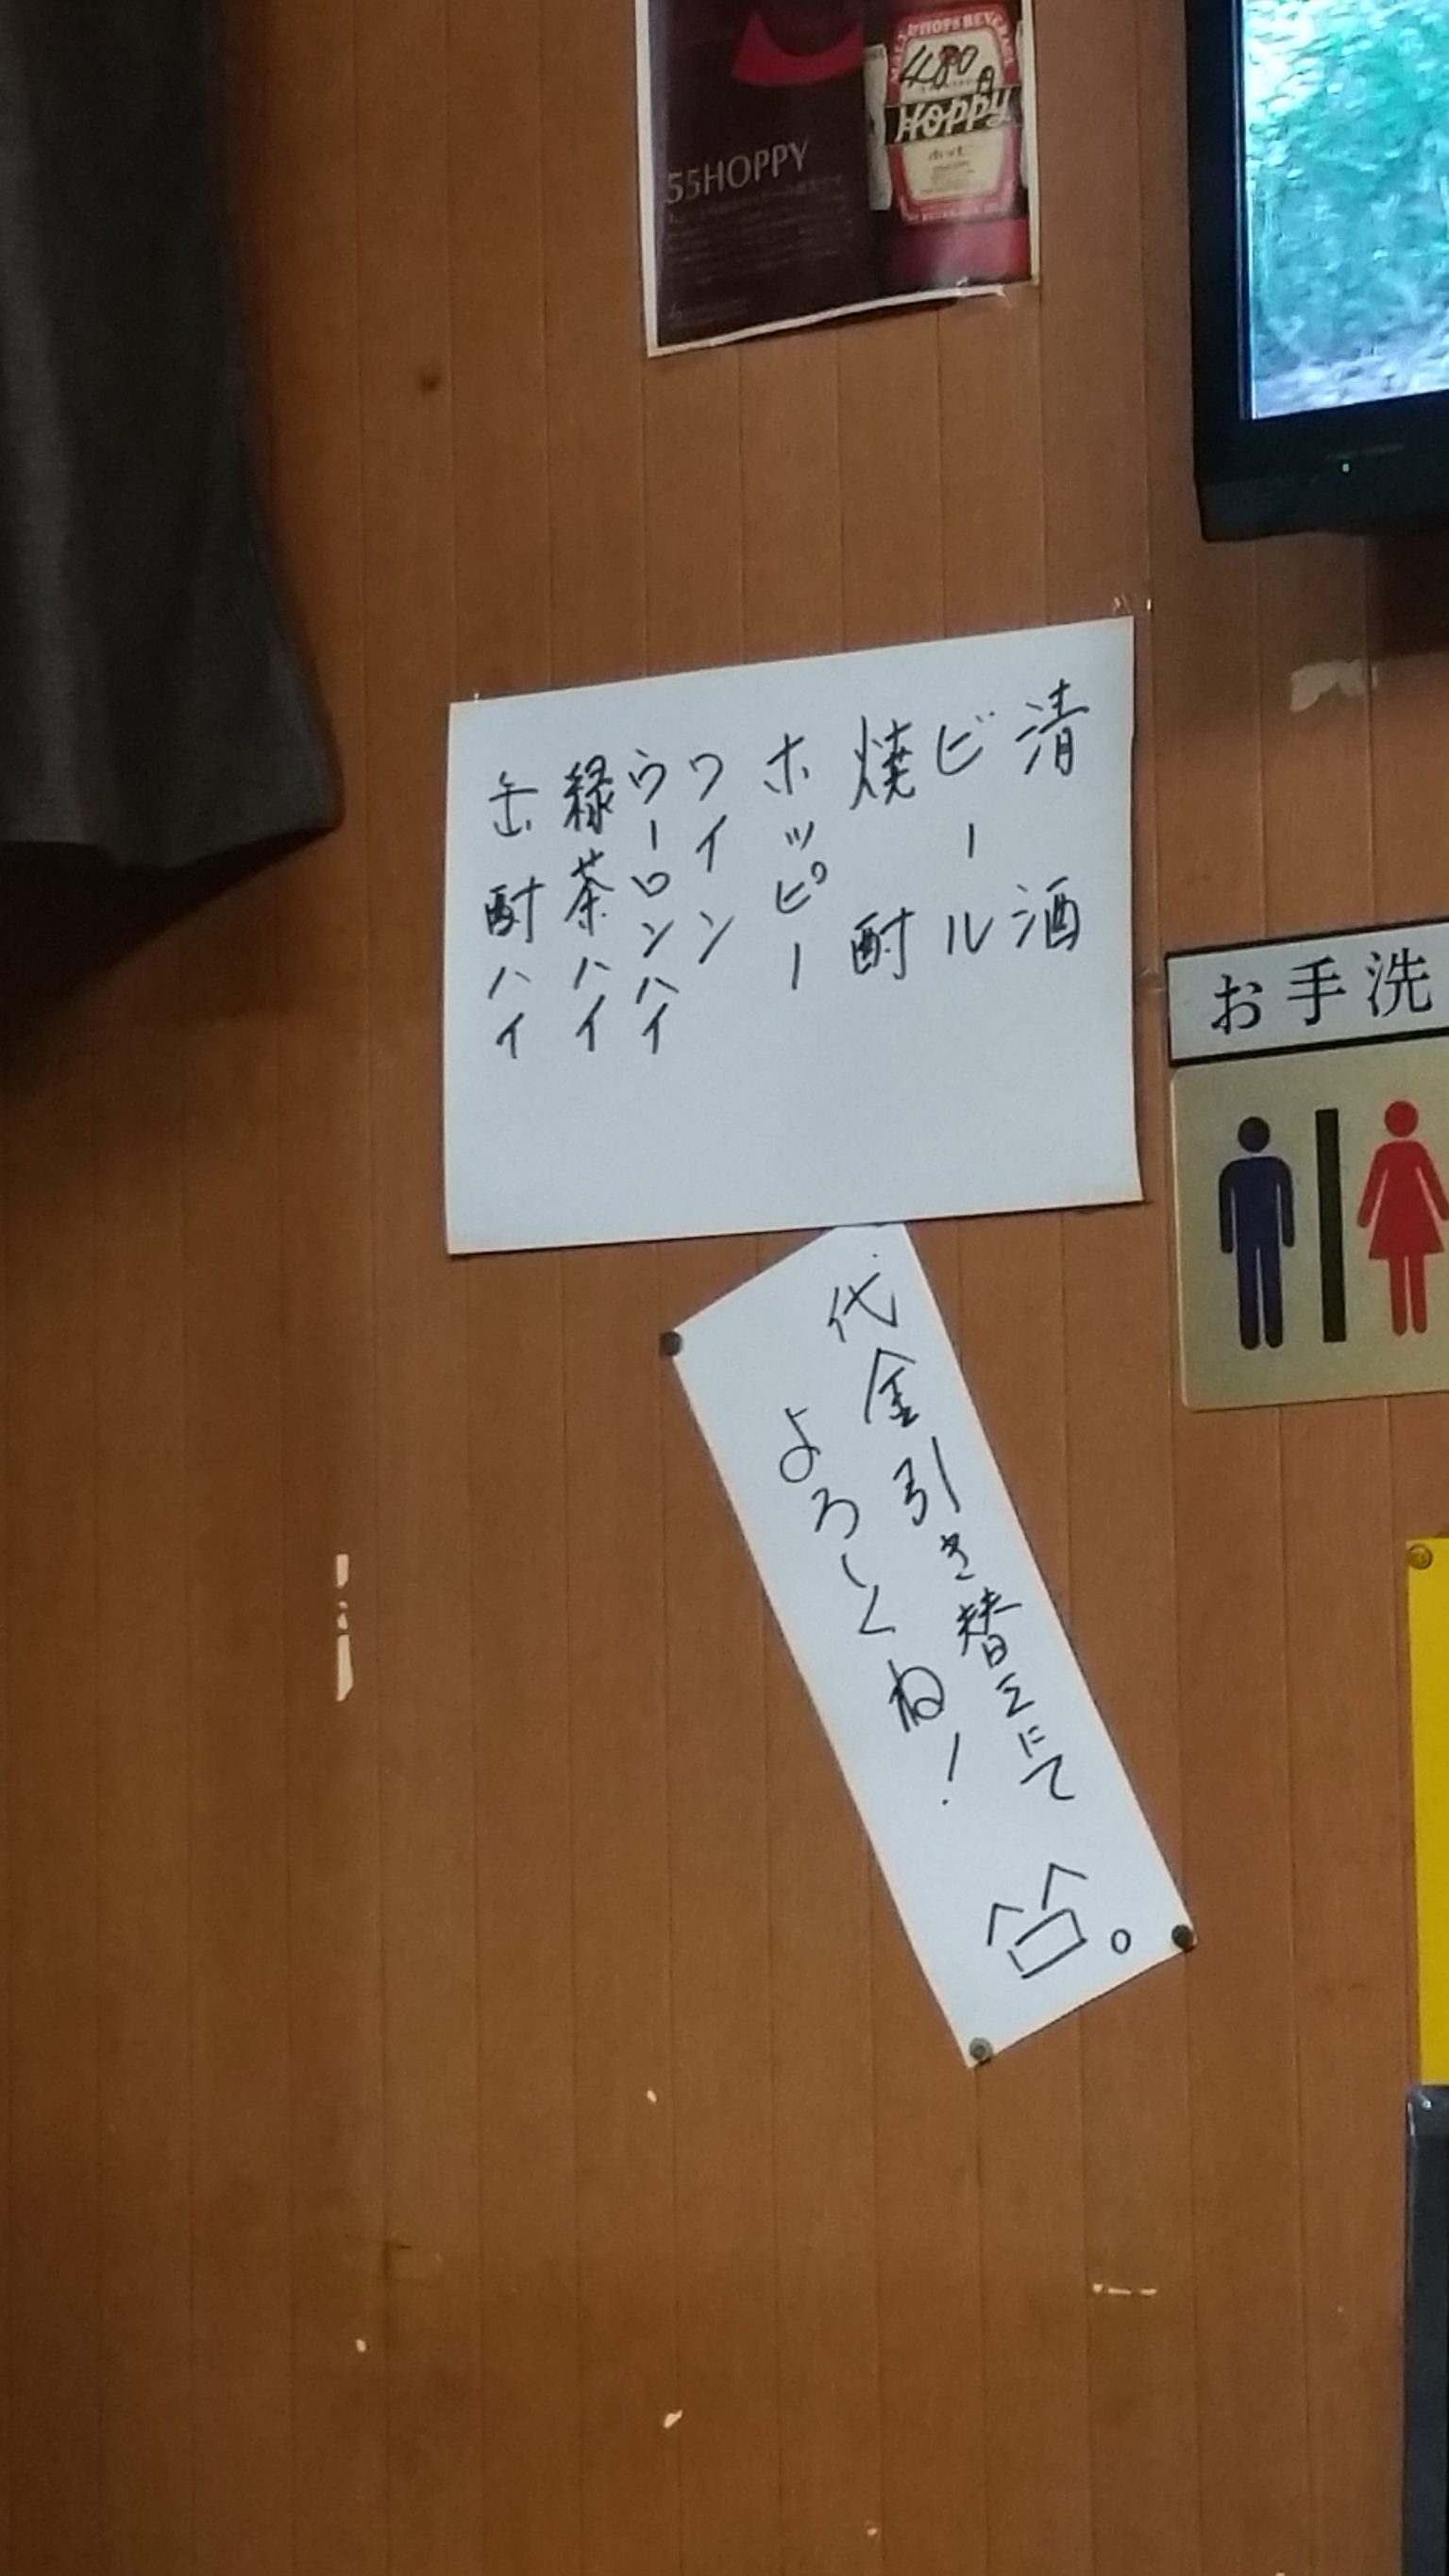 480円
Hoppy
ホッピー
55HOPPY
清酒
ビール
焼酎
ホッピー
ワイン
ウーロンハイ
緑茶ハイ
缶酎ハイ
お手洗
代金引き替えにて
よろしくね!
^口^。